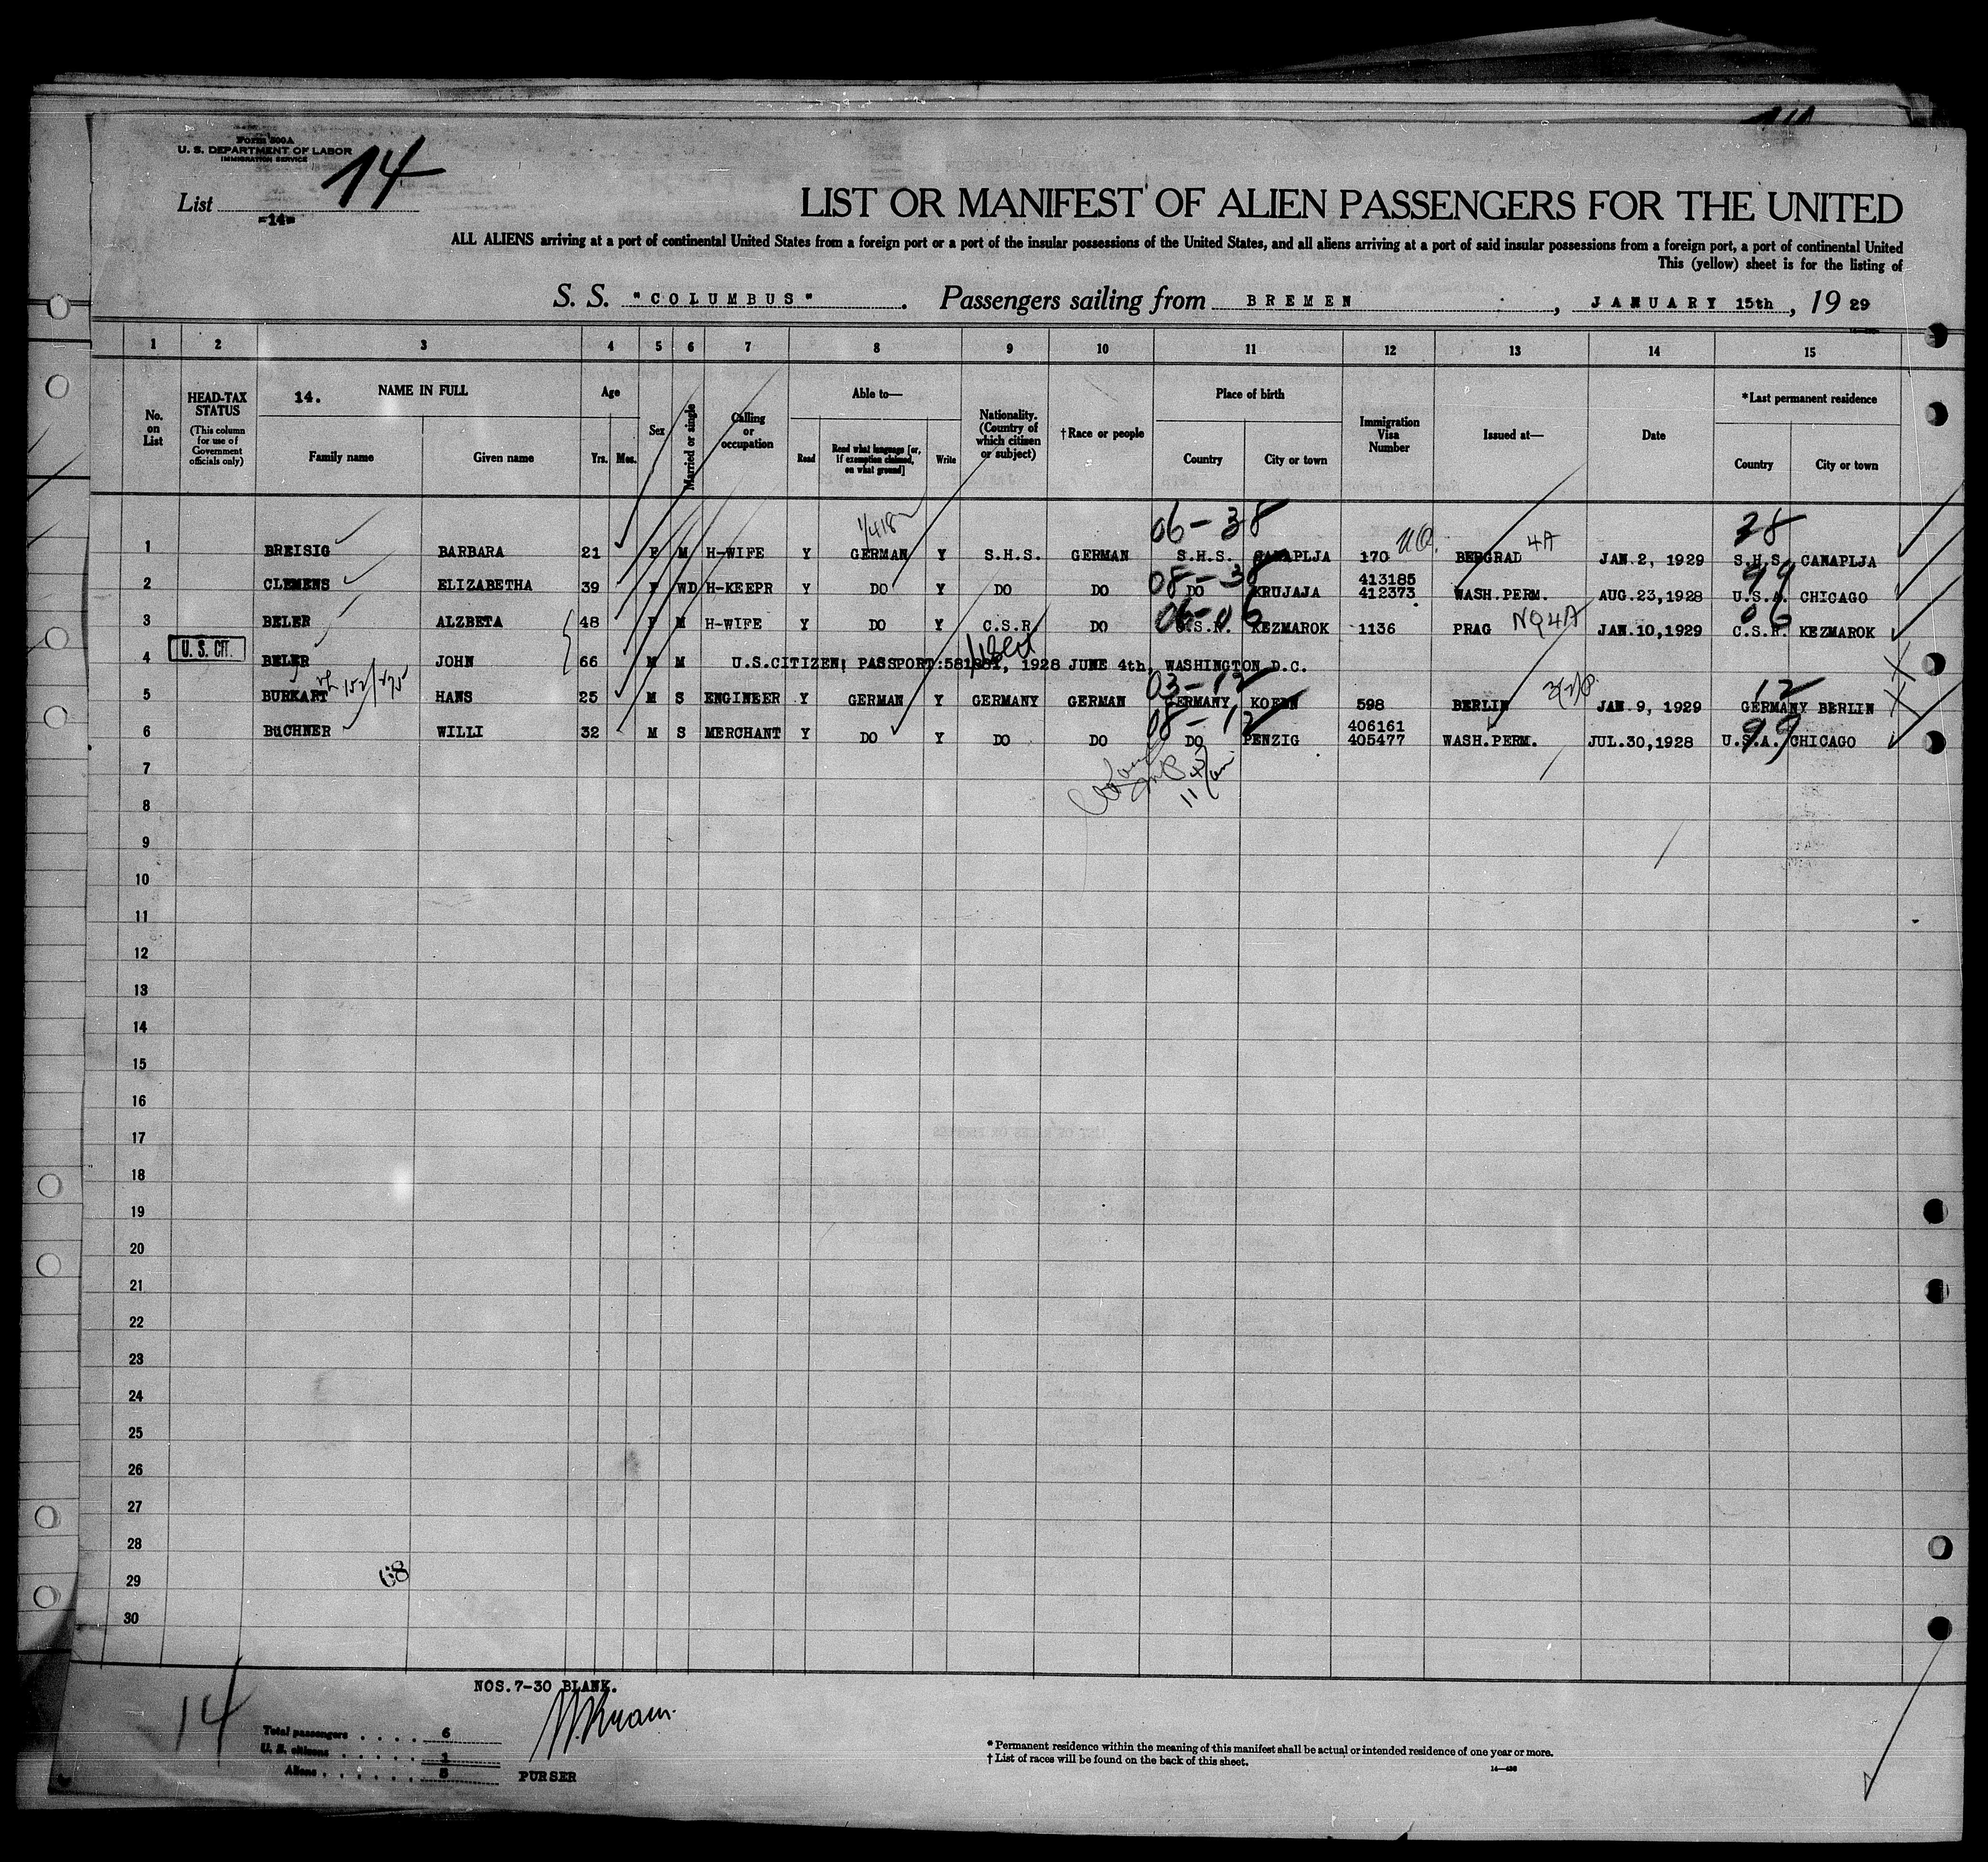 Form 500A
U. S. DEPARTMENT OF LABOR
IMMIGRATION SERVICE
14
List
-14-
LIST OR MANIFEST OF ALIEN PASSENGERS FOR THE UNITED
ALL ALIENS arriving at a port of continental United States from a foreign port or a port of the insular possessions of the United States, and all aliens arriving at a port of said insular possessions from a foreign port, a port of continental United
This (yellow) sheet is for the listing of
S. S. "COLUMBUS". Passengers sailing from BREMEN, JANUARY 15th, 19 29
1 2 3 4 5 6 7 8 9 10 11 12 13 14 15
No. on List
HEAD-TAX STATUS
(This column for use of Government officials only)
14. NAME IN FULL
Family name
Given name
Age
Yrs. Mos.
Sex
Married or single
Calling or occupation
Able to—
Read
Read what language [or, if exemption claimed, on what ground]
Write
Nationality. (Country of which citizen or subject)
†Race or people
Place of birth
Country
City or town
Immigration Visa Number
Issued at—
Date
*Last permanent residence
Country
City or town
06-38 28
1 BREISIG BARBARA 21 F M H-WIFE Y GERMAN Y S.H.S. GERMAN S.H.S. CANAPLJA 170 BERGRAD 4A JAN.2, 1929 S.H.S. CANAPLJA
08-38 99
2 CLEMENS ELIZABETHA 39 F WD H-KEEPR Y DO Y DO DO DO KRUJAJA 413185 412373 WASH.PERM. AUG.23,1928 U.S.A. CHICAGO
06-06 06
3 BELER ALZBETA 48 F M H-WIFE Y DO Y C.S.R. DO C.S.R. KEZMAROK 1136 PRAG NQ4A JAN.10,1929 C.S.R. KEZMAROK
U. S. CIT.
4 BELER JOHN 66 M M U.S.CITIZEN; PASSPORT: 1928 JUNE 4th, WASHINGTON D.C.
03-12 12
5 BURKART HANS 25 M S ENGINEER Y GERMAN Y GERMANY GERMAN GERMANY 598 BERLIN JAN.9, 1929 GERMANY BERLIN
08-12 99
6 BUCHNER WILLI 32 M S MERCHANT Y DO Y DO DO DO PENZIG 406161 405477 WASH.PERM. JUL.30,1928 U.S.A. CHICAGO
7
8
9
10
11
12
13
14
15
16
17
18
19
20
21
22
23
24
25
26
27
28
29
30
68
NOS.7-30 BLANK.
14
Total passengers 6
U. S. citizens 1
Aliens 5
PURSER
* Permanent residence within the meaning of this manifest shall be actual or intended residence of one year or more.
† List of races will be found on the back of this sheet.